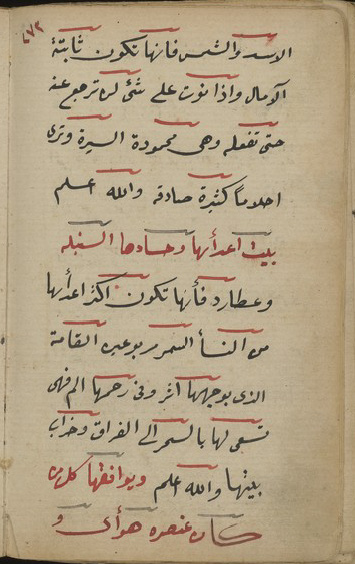 ٤٧٢
الاسد والشمس فانها تكون ثابتة
الآمال واذا نوت على شئ لن ترجع عنه
حتى تفعله وهى محمودة السيرة وترى
احلاماً كثيرة صادقه والله اعلم
بيت اعدأيها وحسادها السنبله
وعطارد فأنها تكون اكثر اعدأيها
من النسأ السمر مربوعين القامة
الذى بوجهها اثر وفى رحمها الم فهى
تسعى لها بالسحر الى الفراق وخراب
بيتها والله اعلم ويوافقها كل من
كان عنصره هوأى و